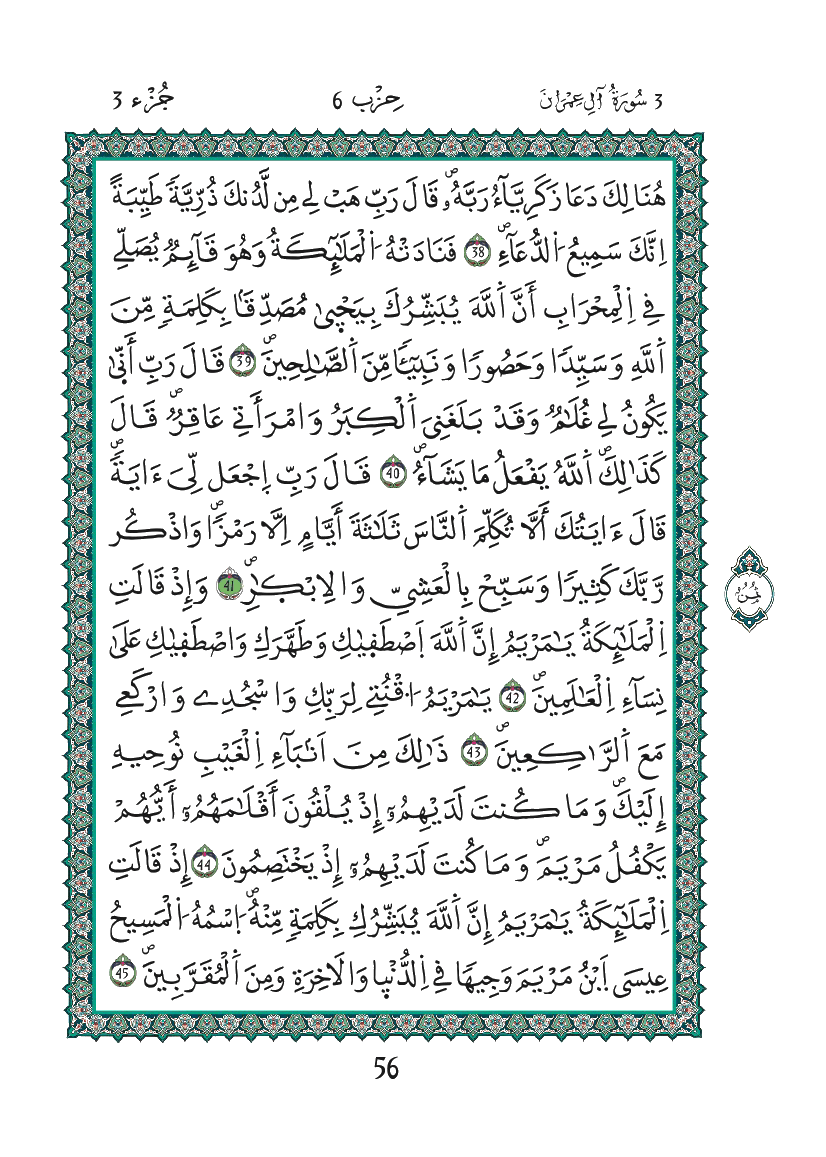 3 سُورَةُ آلِ عِمْرَانَ
حِزْب 6
جُزْء 3
هُنَالِكَ دَعَا زَكَرِيَّآءُ رَبَّهُۥۖ قَالَ رَبِّ هَبْ لِے مِن لَّدُنكَ ذُرِّيَّةٗ طَيِّبَةًۖ
اِنَّكَ سَمِيعُ اُ۬لدُّعَآءِۖ 38 فَنَادَتْهُ اُ۬لْمَلَٰٓئِكَةُ وَهُوَ قَآئِمٞ يُصَلِّے
فِے اِ۬لْمِحْرَابِ أَنَّ اَ۬للَّهَ يُبَشِّرُكَ بِيَحْيَىٰ مُصَدِّقاَۢ بِكَلِمَةٖ مِّنَ
اَ۬للَّهِ وَسَيِّدٗا وَحَصُورٗا وَنَبِيٓـٔٗا مِّنَ اَ۬لصَّٰلِحِينَۖ 39 قَالَ رَبِّ أَنّ۪ىٰ
يَكُونُ لِے غُلَٰمٞ وَقَدْ بَلَغَنِيَ اَ۬لْكِبَرُ وَامْرَأَتِے عَاقِرٞۖ قَالَ
كَذَٰلِكَۖ اَ۬للَّهُ يَفْعَلُ مَا يَشَآءُۖ 40 قَالَ رَبِّ اِجْعَل لِّيَ ءَايَةٗۖ
قَالَ ءَايَتُكَ أَلَّا تُكَلِّمَ اَ۬لنَّاسَ ثَلَٰثَةَ أَيَّامٍ اِلَّا رَمْزٗاۖ وَاذْكُر
رَّبَّكَ كَثِيرٗا وَسَبِّحْ بِالْعَشِيِّ وَالِابْكٰ۪رِۖ 41 وَإِذْ قَالَتِ
اِ۬لْمَلَٰٓئِكَةُ يَٰمَرْيَمُ إِنَّ اَ۬للَّهَ اَ۪صْطَف۪يٰكِ وَطَهَّرَكِ وَاصْطَف۪يٰكِ عَلَىٰ
نِسَآءِ اِ۬لْعَٰلَمِينَۖ 42 يَٰمَرْيَمُ اُ۟قْنُتِے لِرَبِّكِ وَاسْجُدِے وَارْكَعِے
مَعَ اَ۬لرَّٰكِعِينَۖ 43 ذَٰلِكَ مِنَ اَنۢبَآءِ اِ۬لْغَيْبِ نُوحِيهِ
إِلَيْكَۖ وَمَا كُنتَ لَدَيْهِمُۥٓ إِذْ يُلْقُونَ أَقْلَٰمَهُمُۥٓ أَيُّهُمْ
يَكْفُلُ مَرْيَمَۖ وَمَا كُنتَ لَدَيْهِمُۥٓ إِذْ يَخْتَصِمُونَ 44 إِذْ قَالَتِ
اِ۬لْمَلَٰٓئِكَةُ يَٰمَرْيَمُ إِنَّ اَ۬للَّهَ يُبَشِّرُكِ بِكَلِمَةٖ مِّنْهُۖ اُ۪سْمُهُ اُ۬لْمَسِيحُ
عِيسَى اَ۪بْنُ مَرْيَمَ وَجِيهٗا فِے اِ۬لدُّنْي۪ا وَالَاخِرَةِ وَمِنَ اَ۬لْمُقَرَّبِينَۖ 45
ثُمُنُ
56